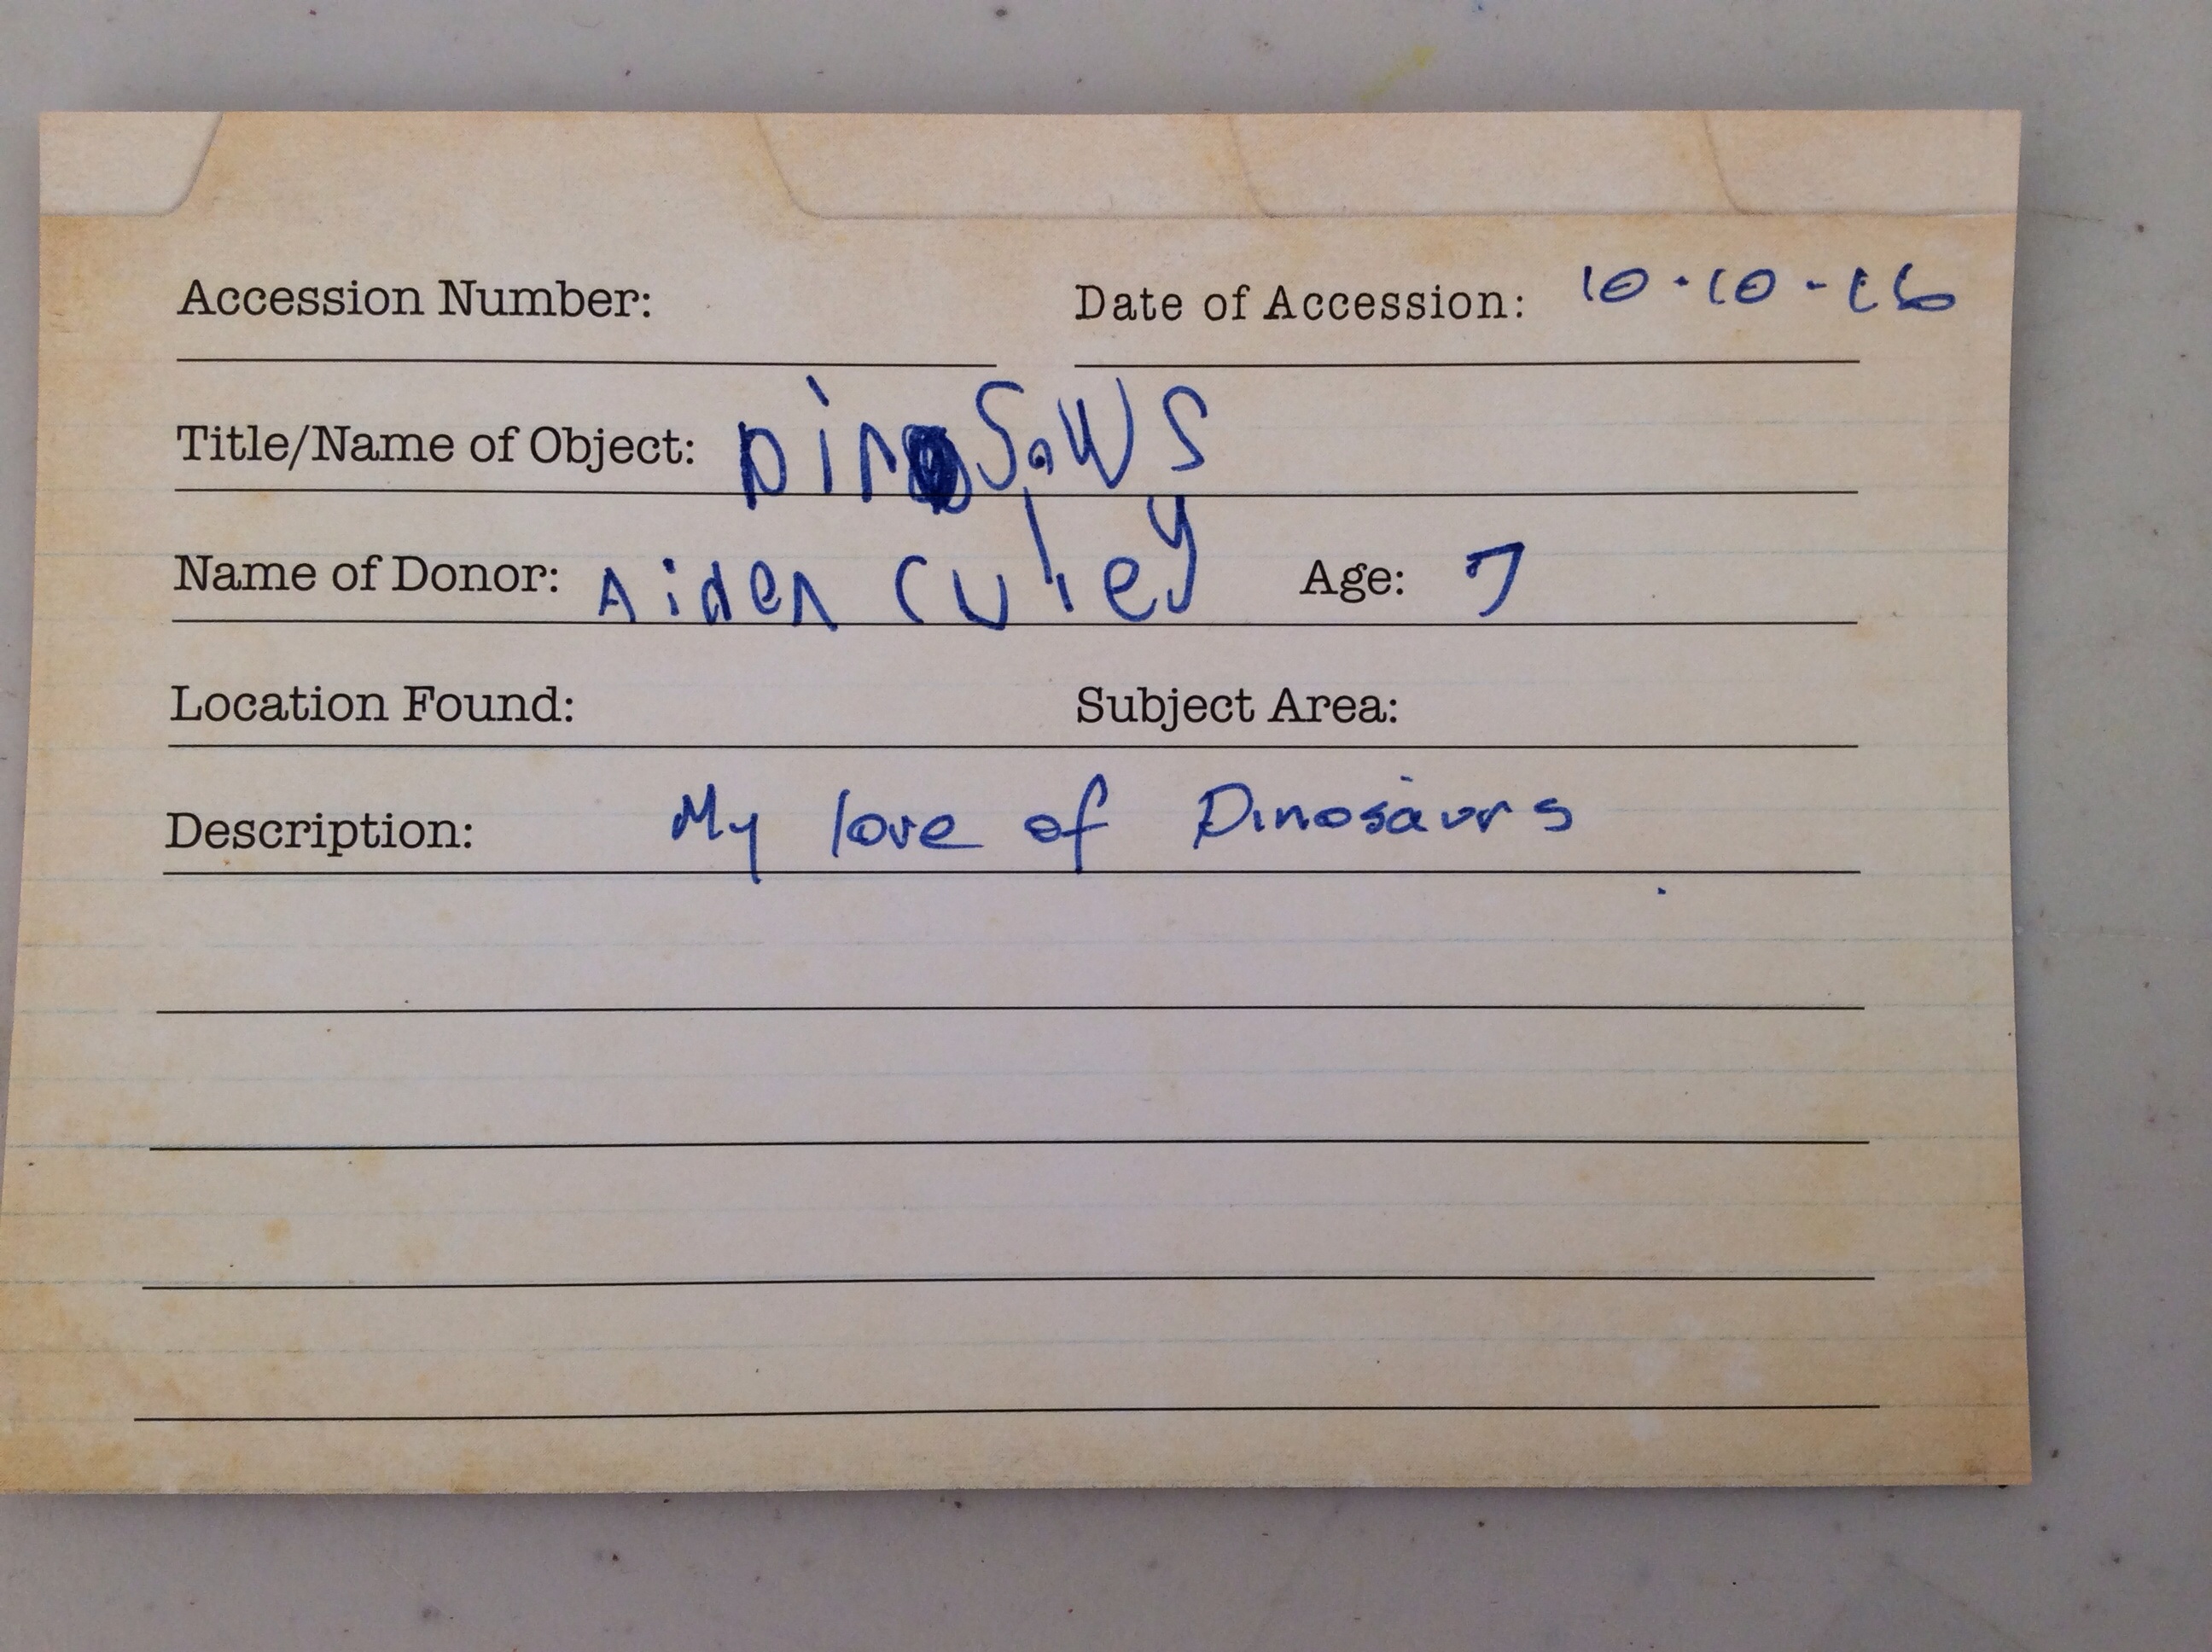 Accession Number: Date of Accession: 10-10-16
Title/Name of Object: DinoSaWS
Name of Donor: Aiden Culey Age: 7
Location Found: Subject Area:
Description: My love of Dinosaurs